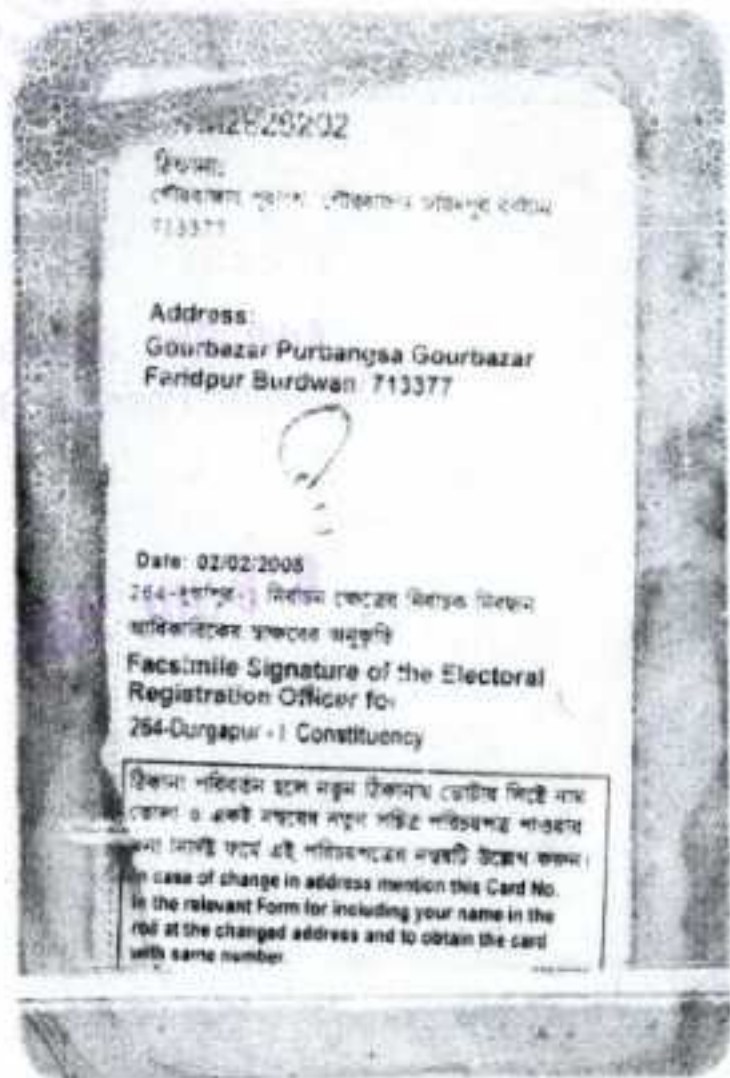 2829202
ঠিকানা:
গৌরবাজার গৌরবাজার ফরিদপুর বর্ধমান
713377
Address:
Gourbazar Purbangsa Gourbazar
Faridpur Burdwan 713377
Date: 02/02/2008
264-দুর্গাপুর-1 নির্বাচন ক্ষেত্রের নির্বাচক নিবন্ধন
আধিকারিকের স্বাক্ষরের অনুকৃতি
Facsimile Signature of the Electoral
Registration Officer for
264-Durgapur - I Constituency
ঠিকানা পরিবর্তন হলে নতুন ঠিকানায় ভোটার লিষ্টে নাম
তোলা ও একই নম্বরের নতুন সচিত্র পরিচয়পত্র পাওয়ার
জন্য নির্দিষ্ট ফর্মে এই পরিচয়পত্রের নম্বরটি উল্লেখ করুন।
In case of change in address mention this Card No.
in the relevant Form for including your name in the
roll at the changed address and to obtain the card
with same number.